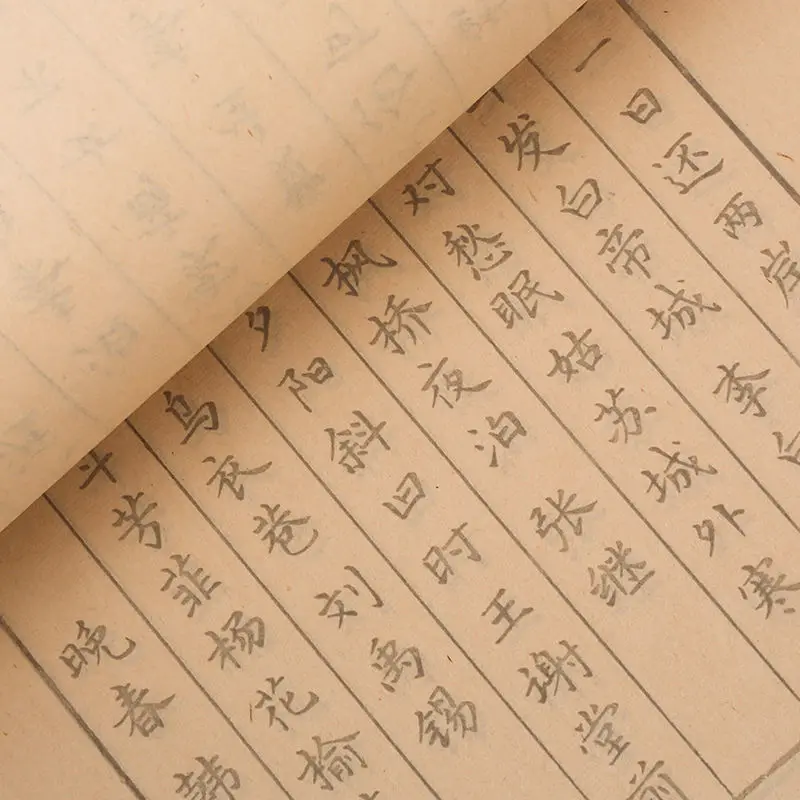 一日还两岸
发白帝城 李白
对愁眠姑苏城外寒
枫桥夜泊 张继
夕阳斜旧时王谢堂前
乌衣巷 刘禹锡
斗芳菲杨花榆
晚春 韩